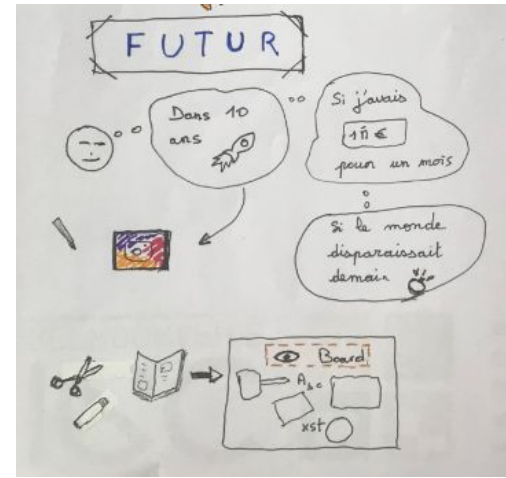 FUTUR
Dans 10
ans
Si j'avais
1M €
pour un mois
Si le monde
disparaissait
demain
Board
Abc
xst